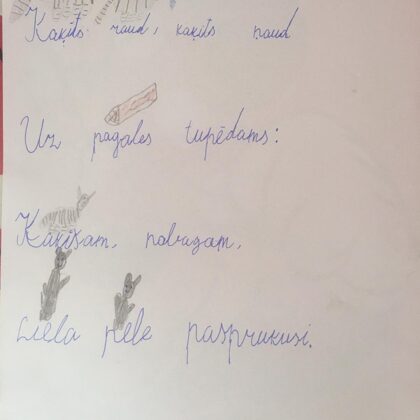 Kaķīts raud, kaķīts ņaud
Uz pagales tupēdams:
Kaķīšam, nabagam,
Liela pele pasprukusi.